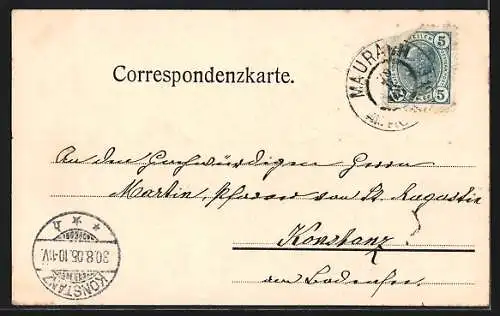 Correspondenzkarte.
MAURACH
5 5
An den Hochwürdigen Herrn
Martin, Pfarrer von St. Augustin
Konstanz
am Bodensee.
KONSTANZ
30.8.05.10-11V.